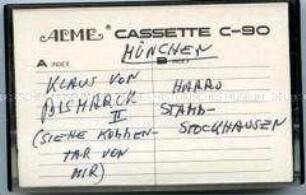 ACME CASSETTE C-90
MÜNCHEN
A INDEX
B INDEX
KLAUS VON
BISMARCK
II
(SIEHE KOMMEN-
TAR VON
MIR)
HARRO
STAMB-
STOCKHAUSEN